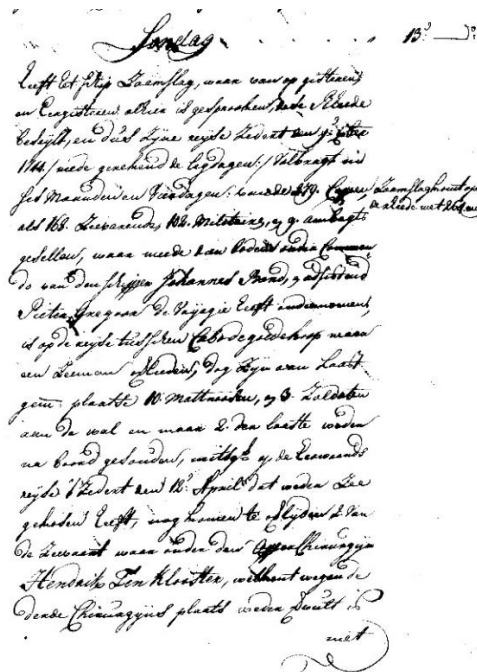 Sondag 13.
heeft het schip Zaamslag, waar van op gisteren
en eergisteren alhier is gesprooken, de Rheede
bezeijlt, en dus zijne reijse zedert den
1744 / mede gerekend de legdagen / volbragt in
ses Maanden en dagen: van de 279. Coppen, Zaamslag komt op
de rheede met 264
als 168. Zeevarende, 102. Militairen, en 9. ambagts
gesellen, waar meede dien bodem onder Comman
do van den schipper Johannes Bond, geadsisteerd
Pieter de Voijagie heeft ondernomen,
is op de reijse tusschen Cabo de goede hoop maar
een Zeeman overleeden, dog zijn aan laast
gem: plaatse 10. Mattroosen, en 3. Zoldaten
aan de wal en maar 2. den laaste weder
na boord gesonden, mitsgs. op de Eerwaards
reijse 't zedert den 12. April dat weder Zee
gekosen heeft, nog komen te overlijden 2. van
de Zeevaart waar onder den opper Chirurgijn
Hendrik Ten Klooster, welkent wegen de
derde Chirurgijns plaats weder vervult is
met